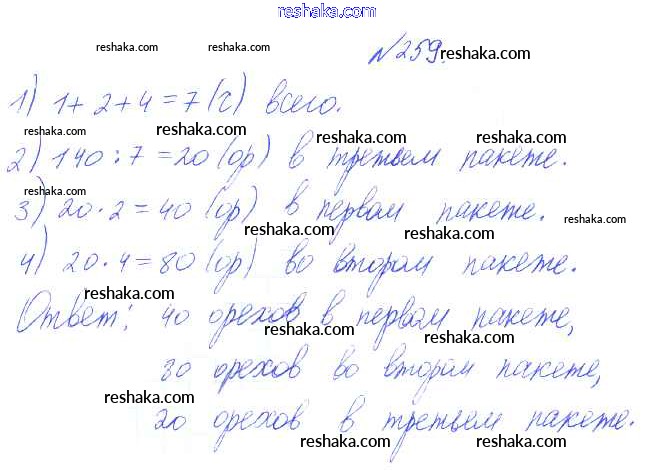 reshaka.com
reshaka.com reshaka.com №259. reshaka.com
1) 1+2+4=7 (ч) всего.
reshaka.com reshaka.com reshaka.com
2) 140:7=20 (ор) в третьем пакете.
reshaka.com reshaka.com
3) 20·2=40 (ор) в первом пакете. reshaka.com
reshaka.com reshaka.com reshaka.com
4) 20·4=80 (ор) во втором пакете.
reshaka.com
Ответ: 40 орехов в первом пакете,
reshaka.com reshaka.com
80 орехов во втором пакете,
reshaka.com reshaka.com reshaka.com
20 орехов в третьем пакете.
reshaka.com reshaka.com